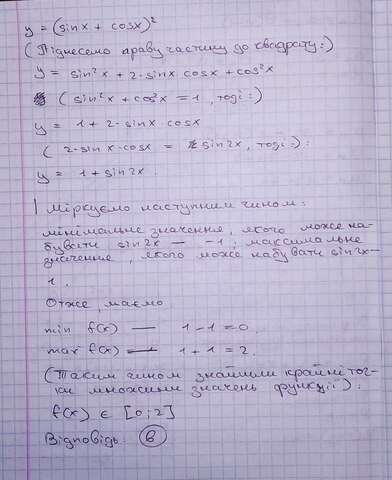 y = (sinx + cosx)²
(Піднесемо праву частину до квадрату:)
y = sin²x + 2·sinx cosx + cos²x
(sin²x + cos²x = 1, тоді:)
y = 1 + 2·sinx cosx
(2·sinx·cosx = sin2x, тоді:):
y = 1 + sin2x.
Міркуємо наступним чином:
мінімальне значення, якого може на-
бувати sin2x — -1; максимальне
значення, якого може набувати sin2x-
1.
Отже, маємо
min f(x) — 1-1=0.
max f(x) — 1+1=2.
(Таким чином знайшли крайні точ-
ки множини значень функції):
f(x) ∈ [0;2]
Відповідь: в